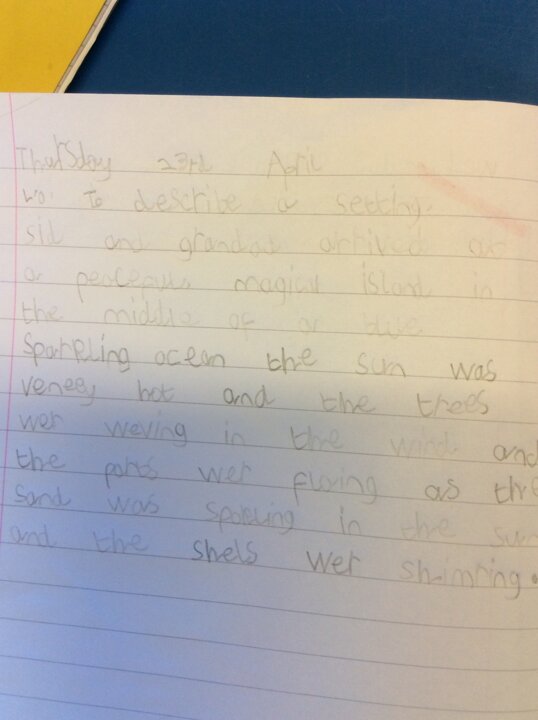 Thursday 23rd April
Lo: To describe a setting.
sid and grandad arrived at
a peacefull magical island in
the middle of a blue
sparkling ocean the sun was
verey hot and the trees
wer weving in the wind and
the wer as the
sand was in the sun
and the shels wer shimring.